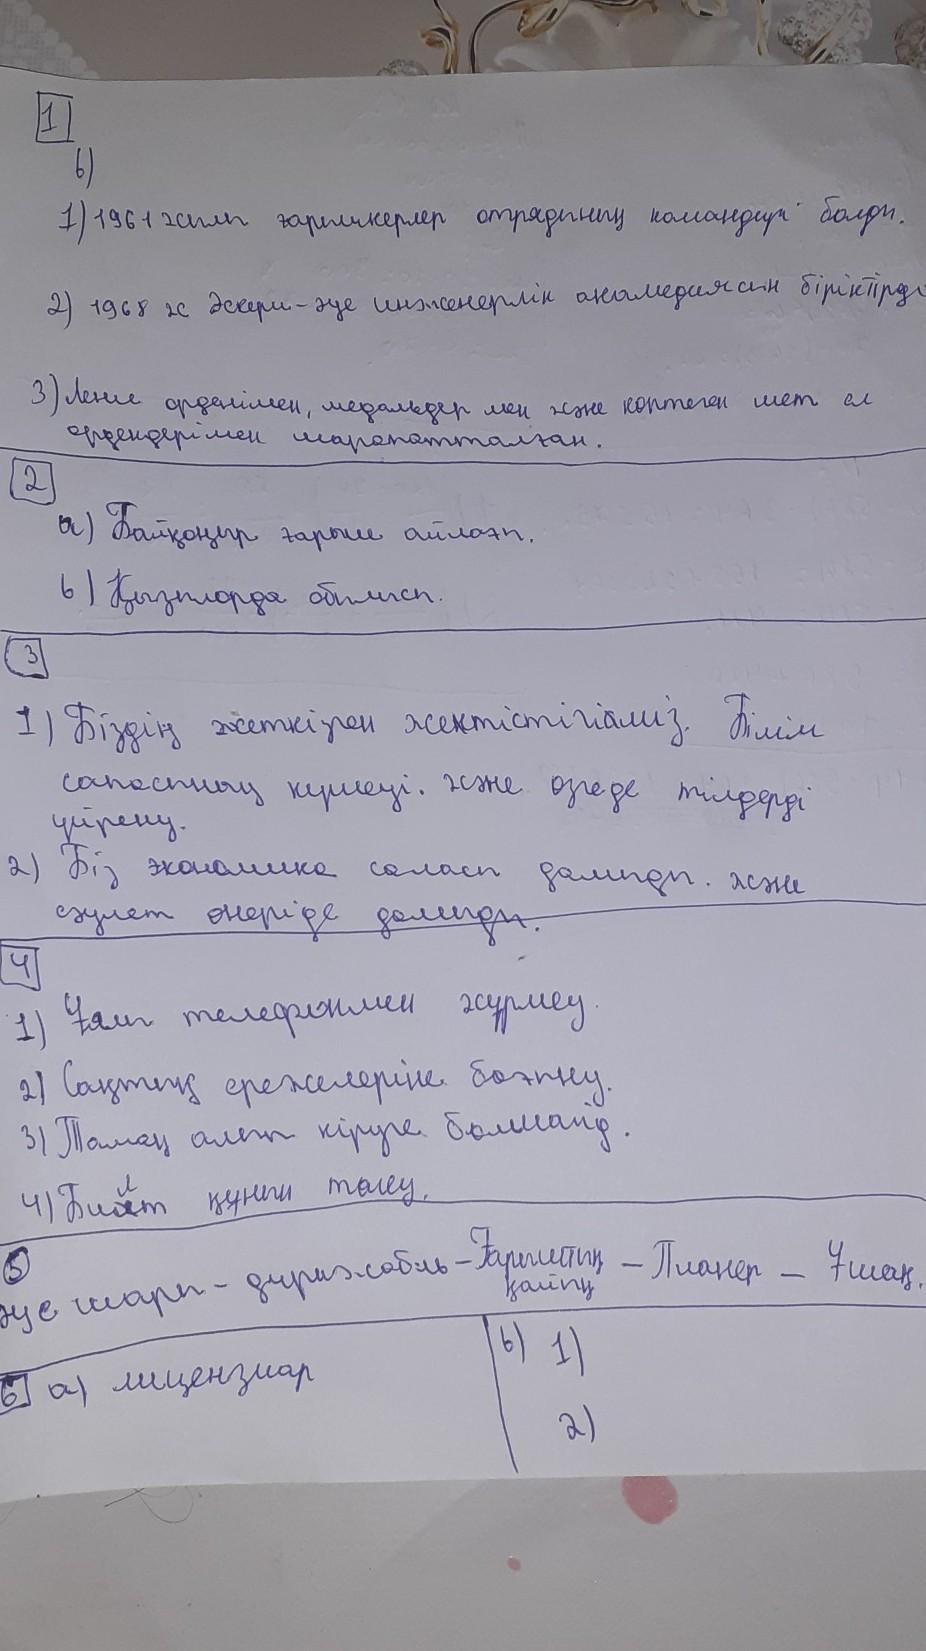 1
b)
1) 1961 жылы ғарышкерлер отрядының командирі болды.
2) 1968 ж Әскери-әуе инженерлік академиясын біріктірді
3) Ленин орденімен, медальдер мен және көптеген шет ел
ордендерімен марапатталған.
2
а) Байқоңыр ғарыш айлағы.
b) Қызылорда облысы.
3
1) Біздің жеткізген жетістігіміз. Білім
сапасының күшеуі. және өзгеде тілдерді
үйрену.
2) Біз экономика саласы дамыды. және
сәулет өнеріде дамыды.
4
1) Ұялы телефонмен жүрмеу.
2) Сақтық ережелеріне бағыну.
3) Тамақ алып кіруге болмайд.
4) Билет құнын төлеу.
5
әуе шары - дирижабль - Ғарыштық - Планер - Ұшақ.
қайық
6 а) лицензиар
b) 1)
2)